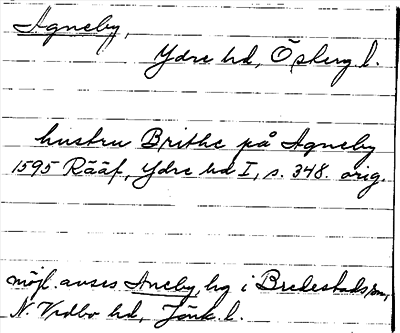 Agneby,
Ydre hd, Östergötl.
hustru Brithe på Agneby
1595 Rääf, Ydre hd I, s. 348. orig.
möjl. avses Aneby, hg i Bredestads sn,
N. Vedbo hd, Jönk. l.